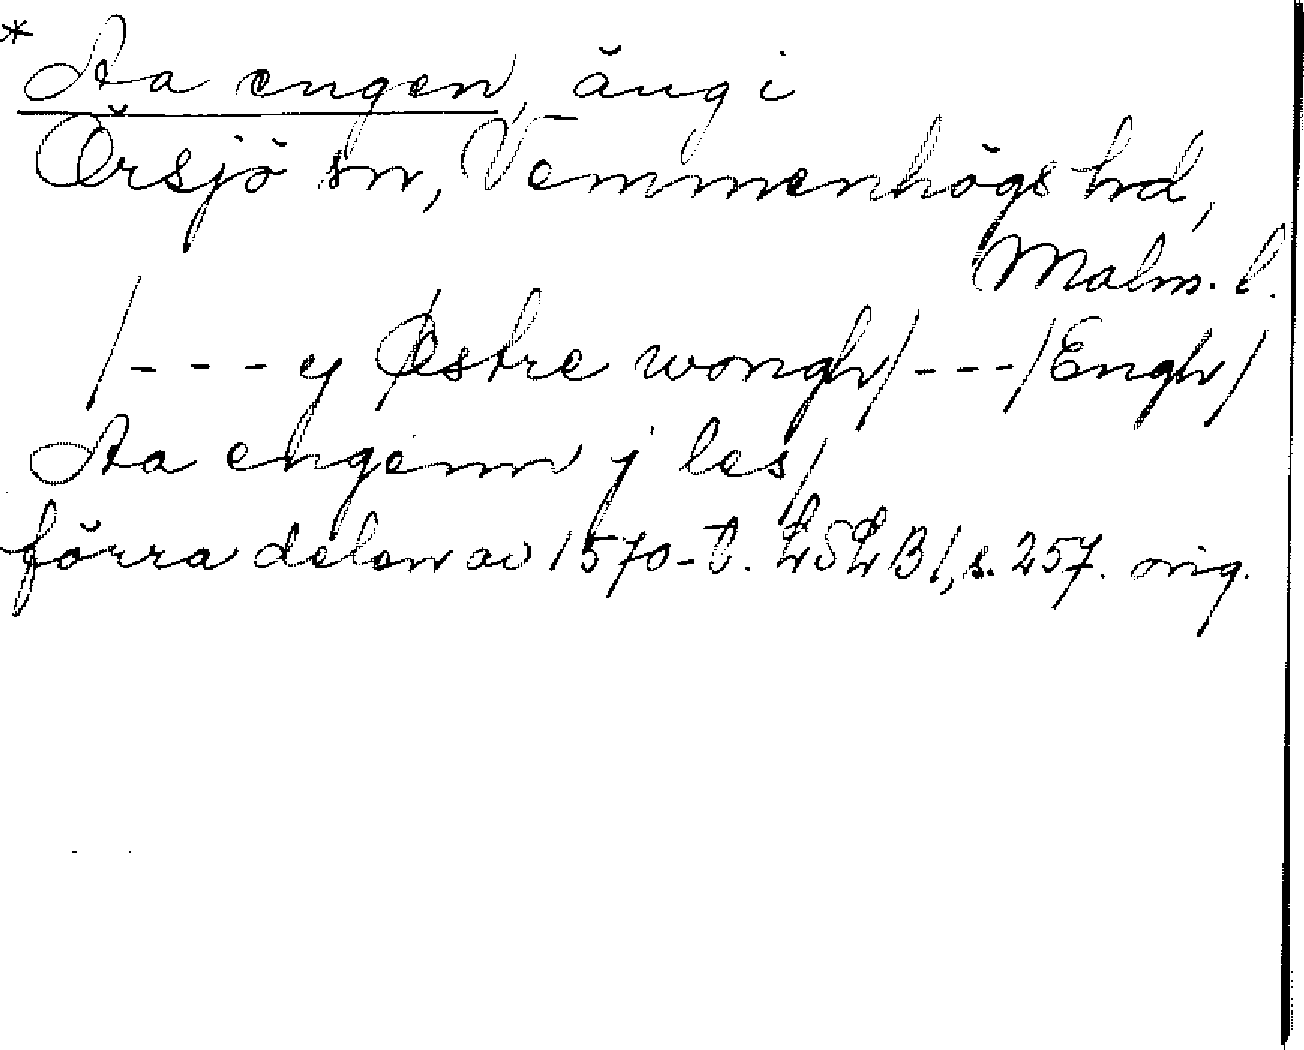 *Aa engen, äng i
Örsjö sn, Vemmenhögs hd,
Malm. l.
/--- y Østre wongh/---/Engh/
Aa engenn j les/
förra delen av 1570-t. LSLB 1, s. 257. orig.